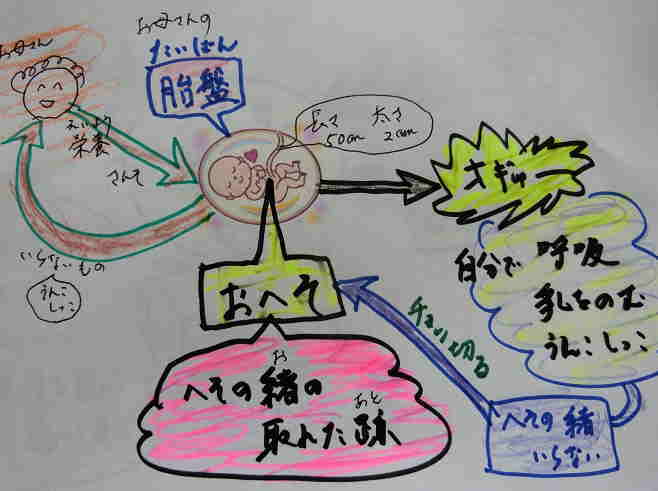 お母さん
お母さんの
たいばん
胎盤
えいよう
栄養
さんそ
いらないもの
うんこ
しっこ
長さ 太さ
50cm 2cm
オギャー
自分で 呼吸
乳をのむ
うんこしっこ
おへそ
チョン切る
へその緒
いらない
お
へその緒の
あと
取れた跡